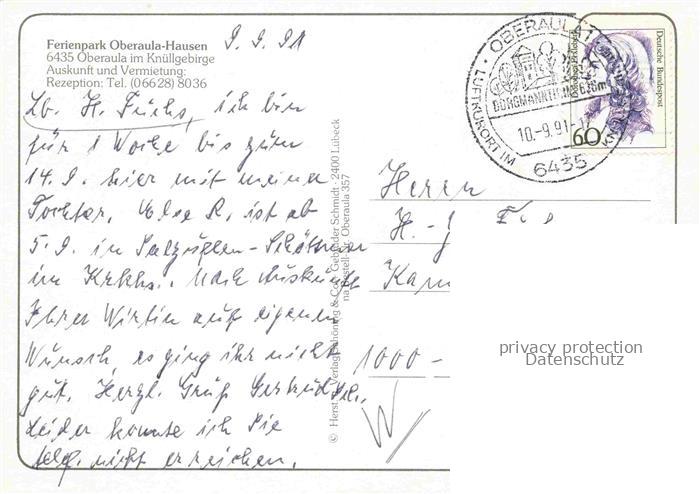 Ferienpark Oberaula-Hausen
6435 Oberaula im Knüllgebirge
Auskunft und Vermietung:
Rezeption: Tel. (06628) 8036
9.9.91
Lb. H. Fuchs, ich bin
für 1 Woche bis zum
14.9. hier mit meiner
Tochter. R. ist ab
5.9. in Salzuflen-Schöttmar
im Krkhs. Nach Auskunft
Ihrer Wirtin auf eigenen
Wunsch, es ging ihr nicht
gut. Herzl. Gruß Gertrud Sch.
Leider konnte ich Sie
telef. nicht erreichen.
© Herst. Verlag Schöning & Co + Gebrüder Schmidt · 2400 Lübeck
nachbestell-Nr. Oberaula 357
OBERAULA 1
BORGMANN 636m
LUFTKURORT IM
10.-9.91-17
6435
Deutsche Bundespost
60
Herrn
H.-J.
1000-
W
privacy protection
Datenschutz